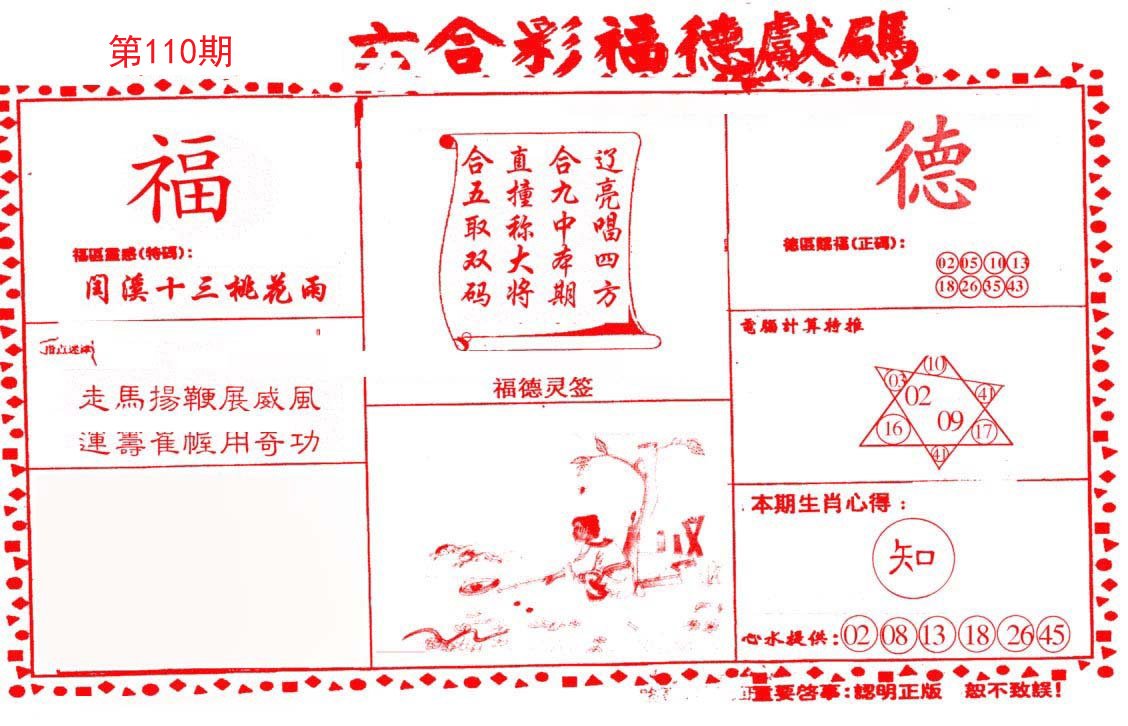 第110期
六合彩福德獻碼
福
福區靈感(特碼):
閏溪十三桃花雨
走馬揚鞭展威風
運籌帷幄用奇功
辽亮唱四方
合九中本期
直撞称大将
合五取双码
福德灵签
德
德區賜福(正碼):
02 05 10 13
18 26 35 43
電腦計算特推
10
03 41
02
09
16 17
41
本期生肖心得:
知
心水提供: 02 08 13 18 26 45
重要啓事:認明正版 恕不致誤!